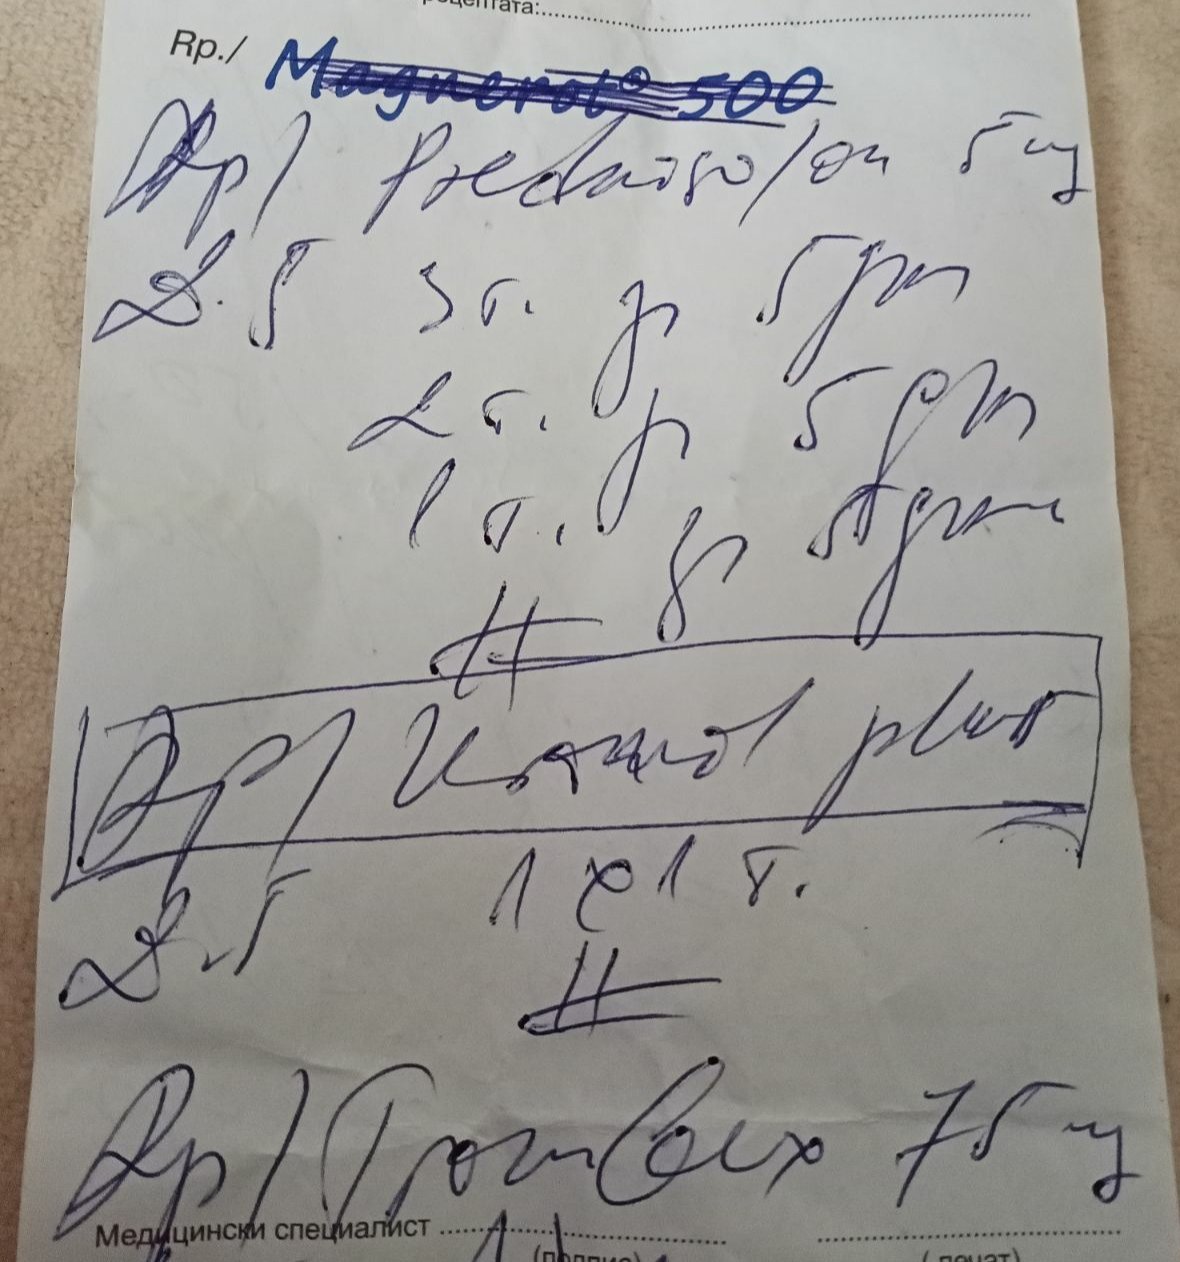 рецептата:
Rp./ Magnerot® 500
Rp/ Prednisolon 5 mg
D.S 3 т. 5 дни
2 т. 5 дни
1 т. 5 дни
#
Rp/ plus
D.S 1 x 1 т.
#
Rp/ Trombex 75 mg
Медицински специалист
(подпис) (печат)